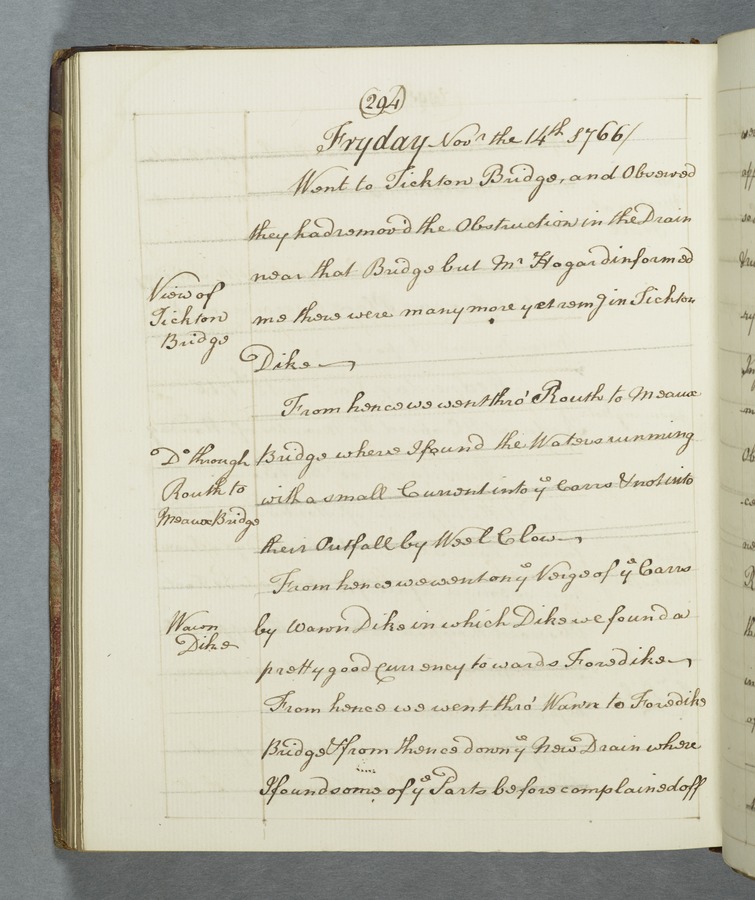 (294)
Fryday Novr the 14th 1766/
Went to Tickton Bridge, and Observed
they had remov'd the Obstruction in the Drain
near that Bridge but Mr Hogard informed
View of
Tickton
Bridge
me there were many more yet remg in Tickton
Dike
From hence we went thro' Routh to Meaux
Do through
Routh to
Meaux Bridge
Bridge where I found the Waters running
with a small Current into ye Carrs & not into
their Outfall by Weel Clow
From hence we went on ye Verge of ye Carrs
Wawn
Dike
by Wawn Dike in which Dike we found a
pretty good Currency towards Foredike
From hence we went thro' Wawn to Foredike
Bridge & from thence down ye New Drain where
I found some of ye Parts before complained off